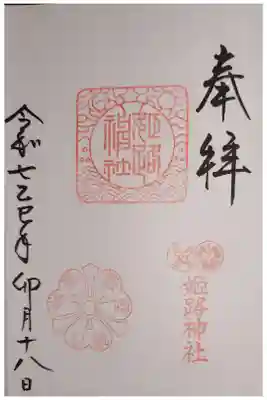 奉拝
姫路神社
姫路神社
令和七乙巳年 卯月十八日